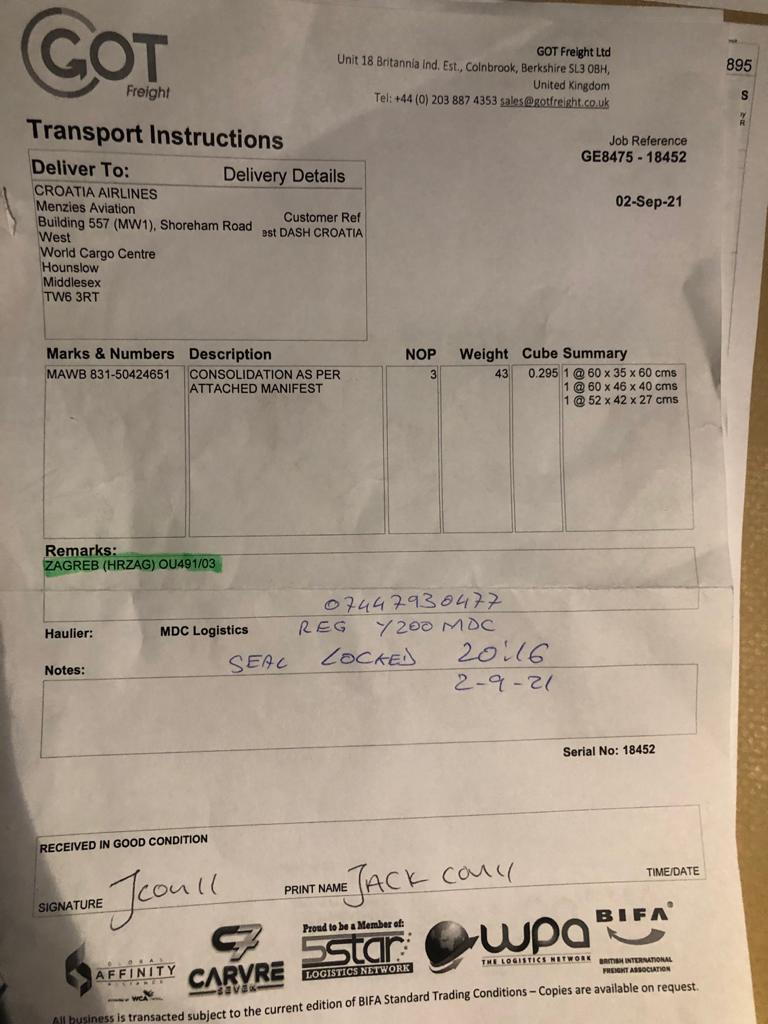 GOT
Freight
GOT Freight Ltd
Unit 18 Britannia Ind. Est., Colnbrook, Berkshire SL3 0BH,
United Kingdom
Tel: +44 (0) 203 887 4353 sales@gotfreight.co.uk
895
S
R
Transport Instructions
Job Reference
GE8475 - 18452
02-Sep-21
Deliver To: Delivery Details
CROATIA AIRLINES
Menzies Aviation
Building 557 (MW1), Shoreham Road
West
World Cargo Centre
Hounslow
Middlesex
TW6 3RT
Customer Ref
est DASH CROATIA
Marks & Numbers Description NOP Weight Cube Summary
MAWB 831-50424651 CONSOLIDATION AS PER 3 43 0.295 1 @ 60 x 35 x 60 cms
ATTACHED MANIFEST 1 @ 60 x 46 x 40 cms
1 @ 52 x 42 x 27 cms
Remarks:
ZAGREB (HRZAG) OU491/03
07447930477
Haulier: MDC Logistics REG Y200 MDC
SEAL LOCKED 20:16
Notes:
2-9-21
Serial No: 18452
RECEIVED IN GOOD CONDITION
SIGNATURE PRINT NAME JACK TIME/DATE
GLOBAL
AFFINITY
ALLIANCE
WCA
C7
CARVRE
SEVEN
Proud to be a Member of:
5star
LOGISTICS NETWORK
wpa
THE LOGISTICS NETWORK
BIFA
BRITISH INTERNATIONAL
FREIGHT ASSOCIATION
All business is transacted subject to the current edition of BIFA Standard Trading Conditions – Copies are available on request.